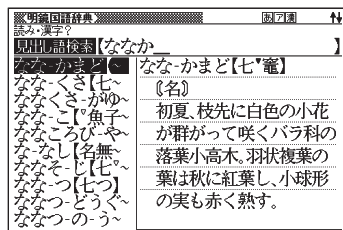 明鏡国語辞典 あア漢
読み・漢字?
見出し語検索【ななか_
なな-かまど【~
なな-くさ【七~
ななくさ-がゆ~
なな-こ【°魚子~
ななころび-や~
な-なし【名無~
ななそ-じ【七°~
なな-つ【七つ】
ななつ-どうぐ~
ななつ-の-う~
なな-かまど【七▼竈】
〘名〙
初夏、枝先に白色の小花
が群がって咲くバラ科の
落葉小高木。羽状複葉の
葉は秋に紅葉し、小球形
の実も赤く熟す。